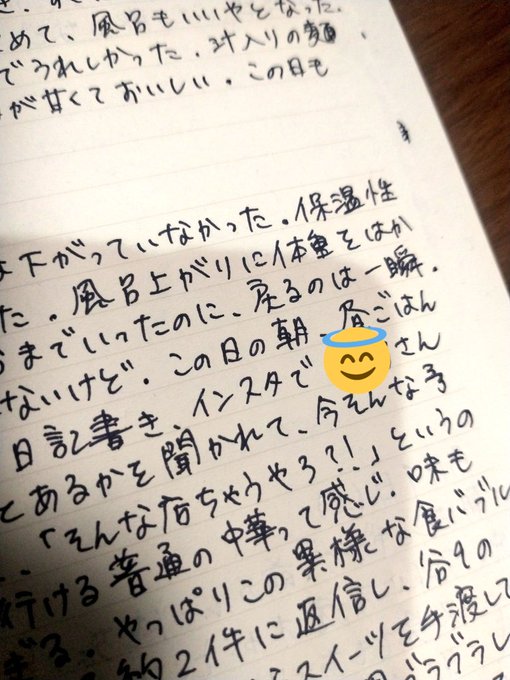 とめて、風呂もいいやとなった.
でうれしかった. 汁入りの麺
が甘くておいしい. この日も
は下がっていなかった. 保温性
た. 風呂上がりに体重をはか
までいったのに、戻るのは一瞬.
ないけど. この日の朝、昼ごはん
日記書き、インスタで さん
とあるかを聞かれて、今そんな
「そんな店ちゃうやろ?!」というの
行ける普通の中華って感じ. 味も
ぎる. やっぱりこの異様な食バブル
約2件に返信し、谷9の
スイーツを手渡して
ブラブラし